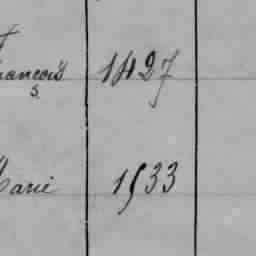 François 1427
s.
Marie 1533